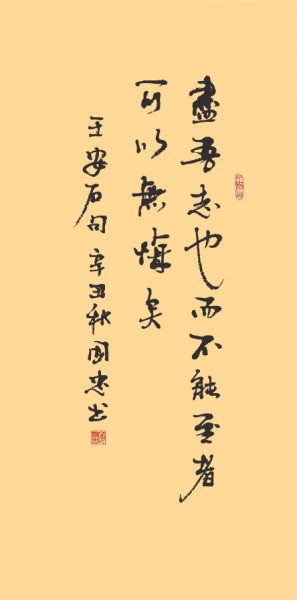 盡吾志也而不能至者
可以無悔矣
王安石句辛丑秋国忠书